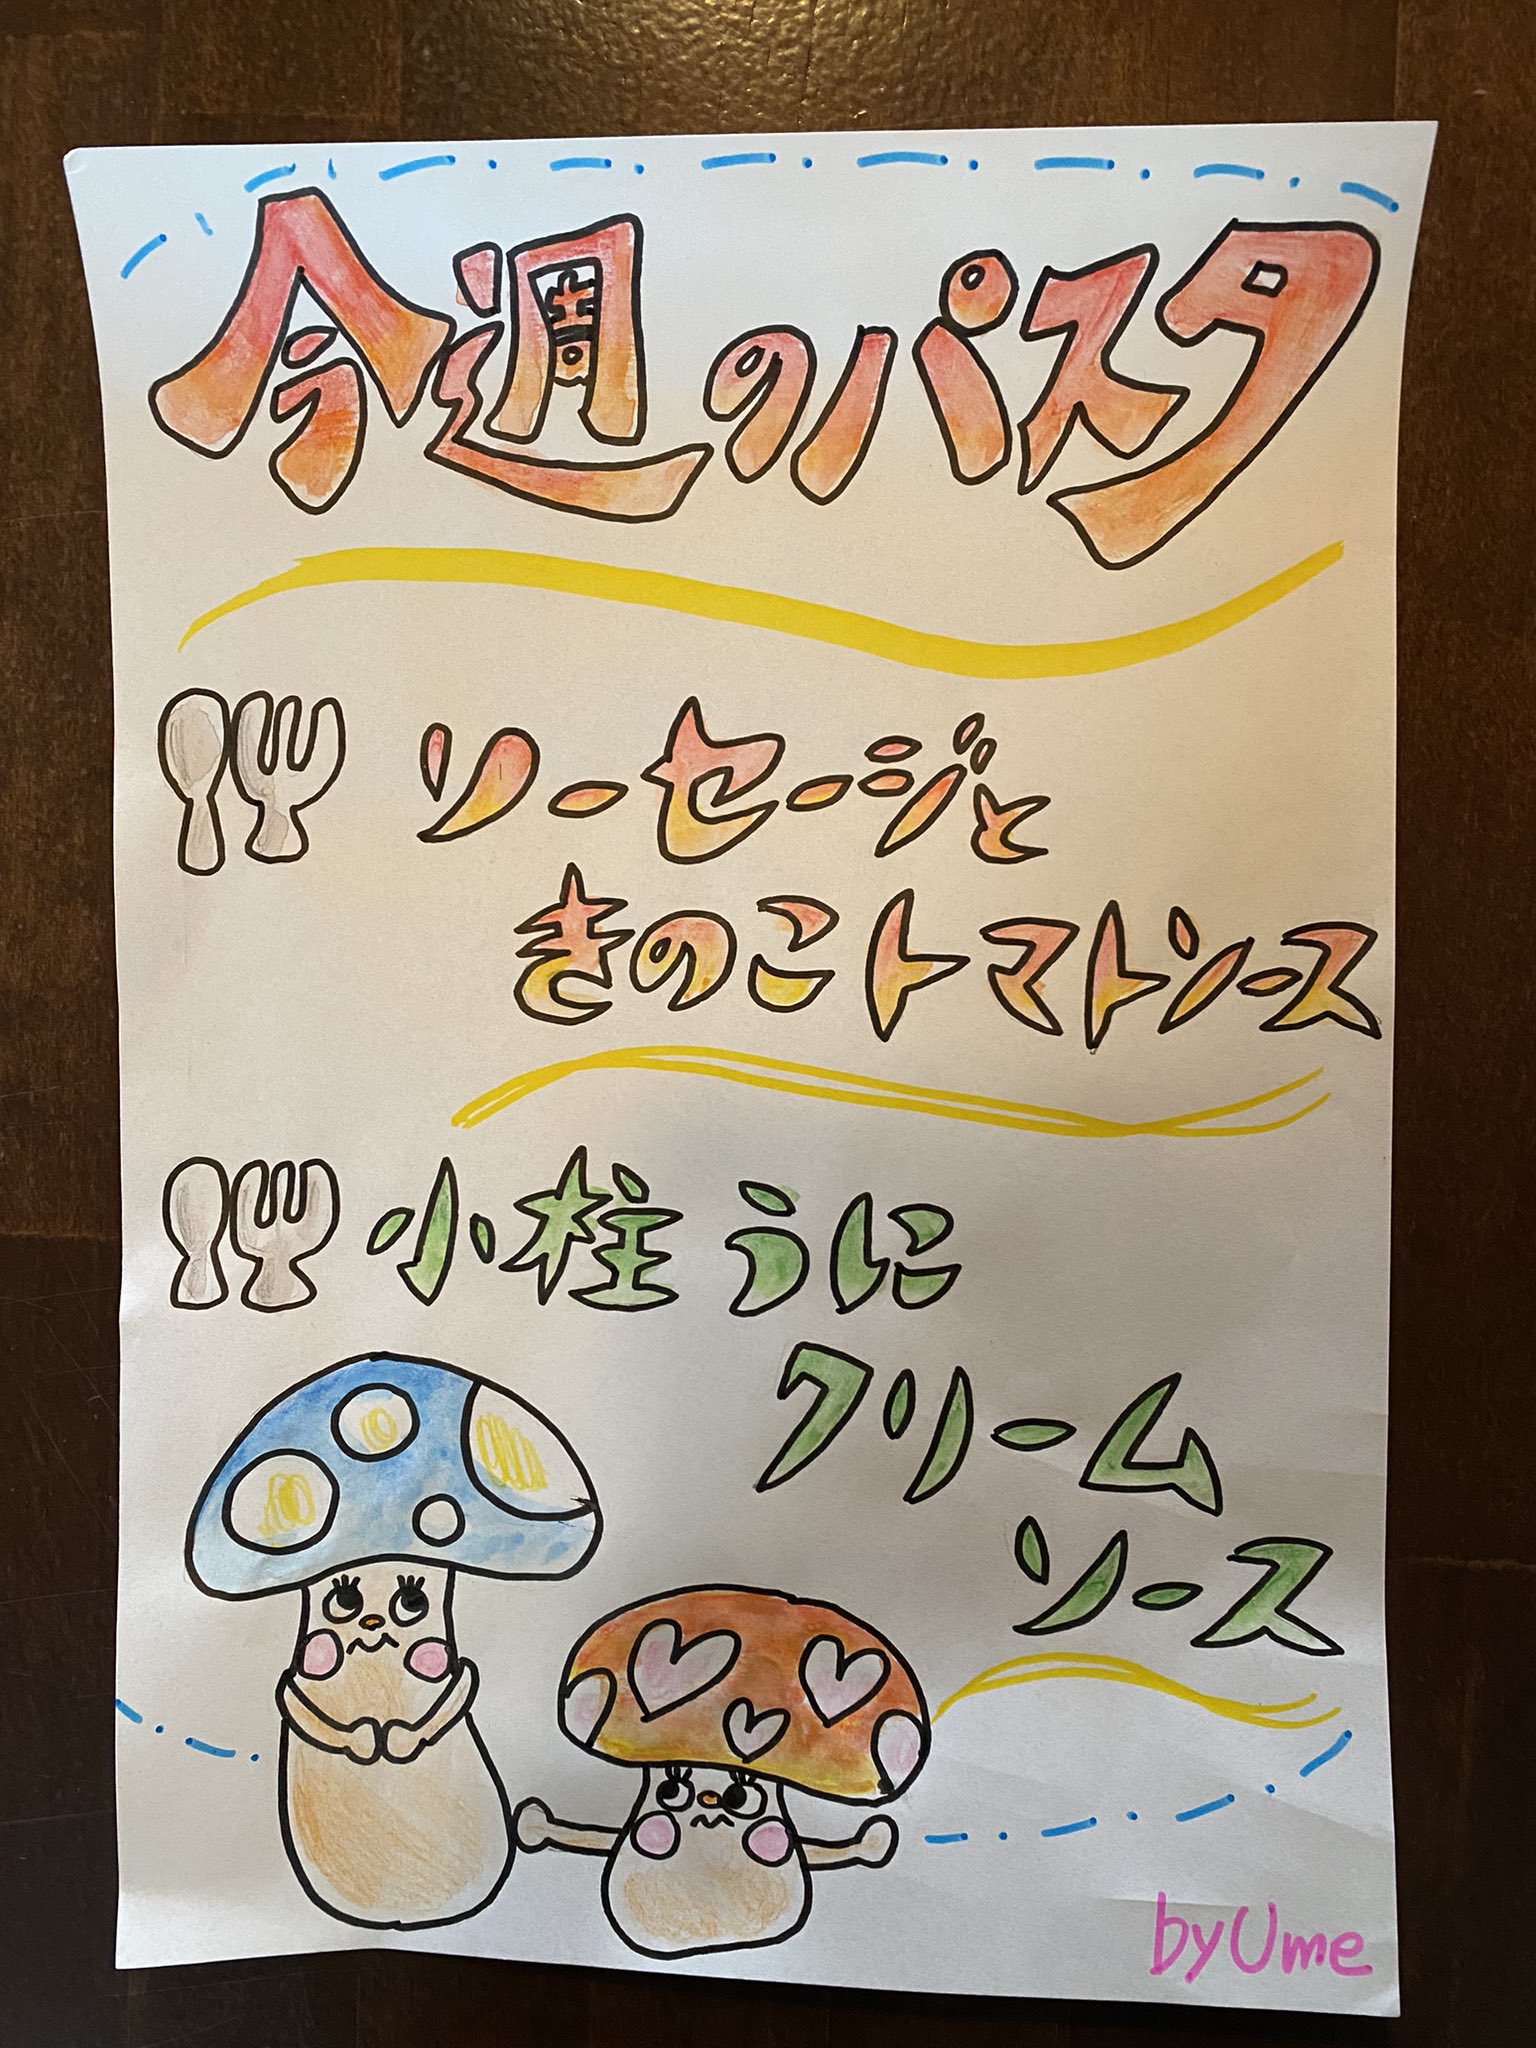 今週のパスタ
ソーセージと
きのこトマトソース
小柱うに
クリーム
ソース
byUme